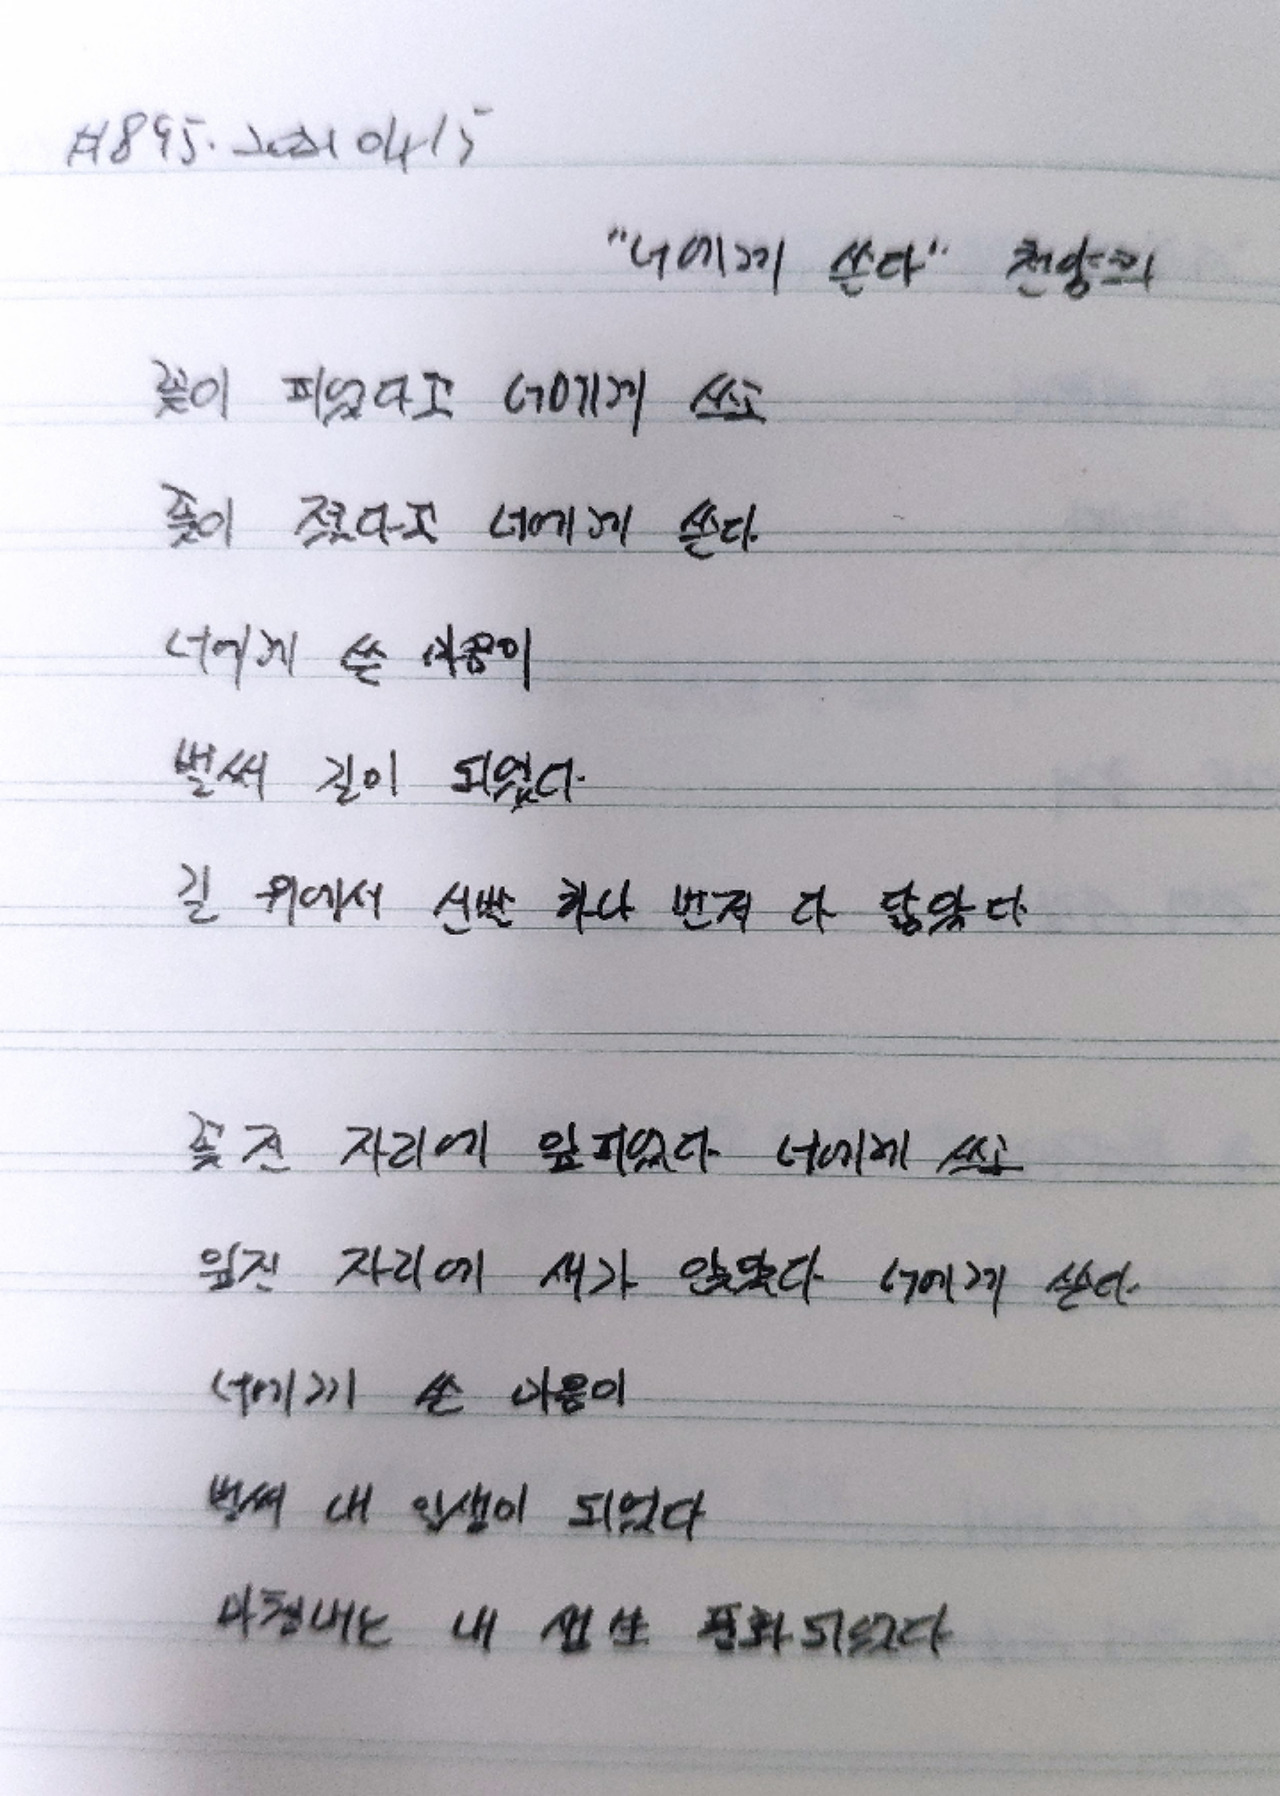 #895. 20210415
"너에게 쓴다" 천양희
꽃이 피었다고 너에게 쓰고
꽃이 졌다고 너에게 쓴다.
너에게 쓴 마음이
벌써 길이 되었다.
길 위에서 신발 하나 먼저 다 닳았다
꽃 진 자리에 잎피었다 너에게 쓰고
잎진 자리에 새가 앉았다 너에게 쓴다.
너에게 쓴 마음이
벌써 내 인생이 되었다
마침내는 내 생 풍화되었다